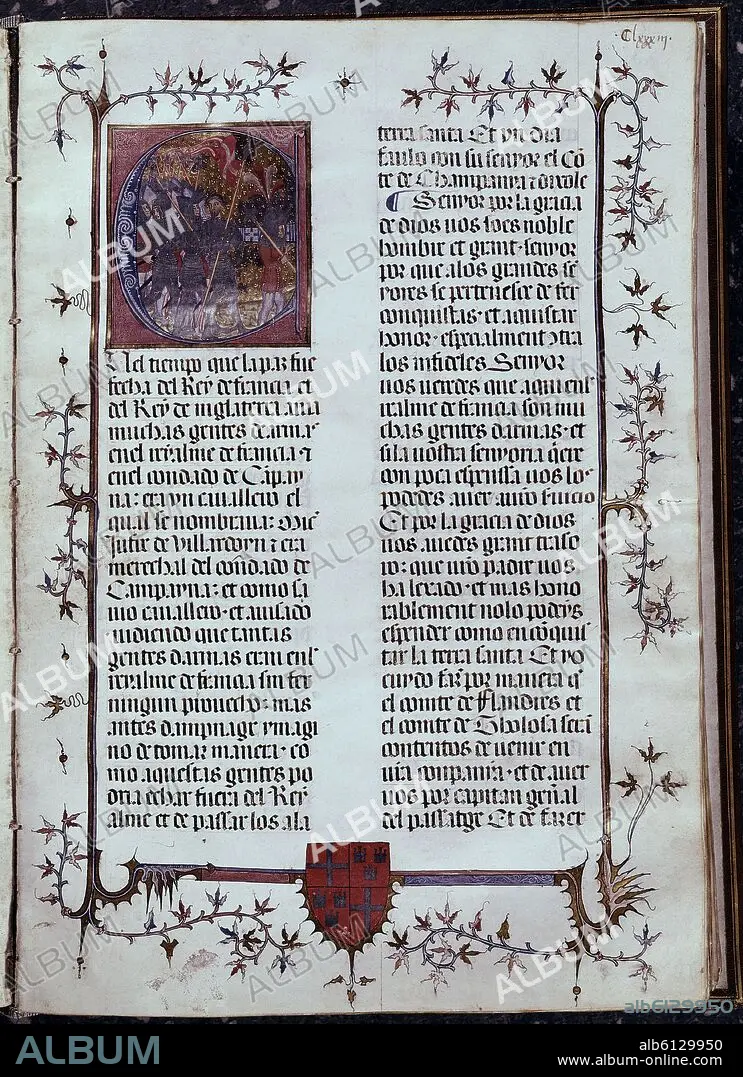 ·Clxxxiij·
Al tiempo que la paz fue
fecha del Rey de francia et
del Rey de inglaterra auia
muchas gentes darmas
en el reyalme de francia ⁊
en el condado de Cāpay
na: era yn cauallero el
qual se nombraua:
de Villardoyn ⁊ era
merechal del condado de
Campayna: et como sa
uio cauallero · et auisado
uidiendo que tantas
gentes darmas eran enl
reyalme de francia sin fer
ningun prouecho: mas
antes dampnage ymagi
no de tomar manera · co
mo aquestas gentes po
dria echar fuera del Rey
alme et de passar los ala
terra santa Et yn dia
faulo con su senyor el Cō
te de Champanya ⁊ dixole
¶ Senyor por la gracia
de dios uos soes noble
hombre et grant · senyor
por que alos grandes se
yores se pertenesce de fer
conquistas · et aquistar
honor · especialment ↄtra
los infideles Senyor
uos ueedes que aqui enl
realme de francia son mu
chas gentes darmas · et
si la uostra senyoria qere
con poca espenssa uos los
podedes auer a uuestro seruicio
Et por la gracia de dios
uos auedes grant traso
ro: que uro padre uos
ha lexado · et mas hono
rablement nolo podeys
espender como en cōquis
tar la terra santa Et yo
cuydo far por manera q̄
el comte de Flandres et
el comte de Tholosa serā
contentos de uenir en
ura conpanya · et de auer
uos por capitan gen̄al
del passatge Et de fazer
ALBUM
alb6129950
ALBUM
alb6129950
www.album-online.com